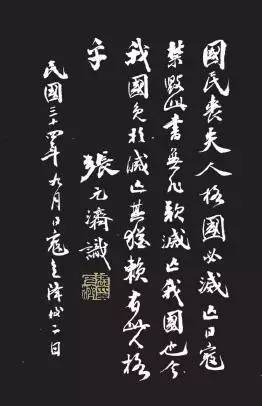 國民喪失人格國必滅亡日寇
禁毀此書無非欲滅亡我國也今
我國免於滅亡其猶賴有此人格
乎
張元濟識
民國三十四年九月日寇降後二日